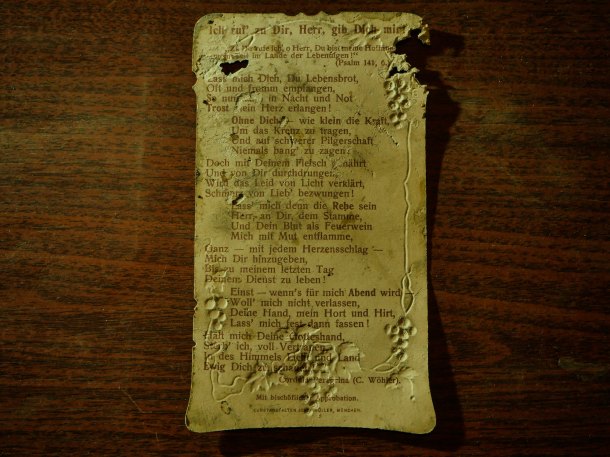 Ich ruf' zu Dir, Herr, gib Dich mir!
„Zu Dir rufe ich, o Herr, Du bist meine Hoffnung
im Lande der Lebendigen!"
(Psalm 141, 6.)
Lass mich Dich, Du Lebensbrot,
Oft und fromm empfangen,
So nur in Nacht und Not
Trost mein Herz erlangen!
Ohne Dich — wie klein die Kraft,
Um das Kreuz zu tragen,
Und auf schwerer Pilgerschaft
Niemals bang' zu zagen.
Doch mit Deinem Fleisch genährt
Und von Dir durchdrungen,
Wird das Leid von Licht verklärt,
Schmerz von Lieb' bezwungen!
Lass' mich denn die Rebe sein
Herr, an Dir, dem Stamme,
Und Dein Blut als Feuerwein
Mich mit Mut entflamme,
Ganz — mit jedem Herzensschlag —
Mich Dir hinzugeben,
Bis zu meinem letzten Tag
Deinem Dienst zu leben!
Einst — wenn's für mich Abend wird
Woll' mich nicht verlassen,
Deine Hand, mein Hort und Hirt,
Lass' mich fest dann fassen!
Hält mich Deine Gotteshand,
ich, voll Vertrauen,
In des Himmels Licht und Land
Ewig Dich zu schauen
Cordula Peregrina (C. Wöhler).
Mit bischöflicher Approbation.
KUNSTANSTALTEN MÜLLER, MÜNCHEN.